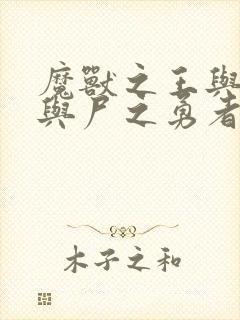 魔獸之王與
與尸之勇者
木子之和